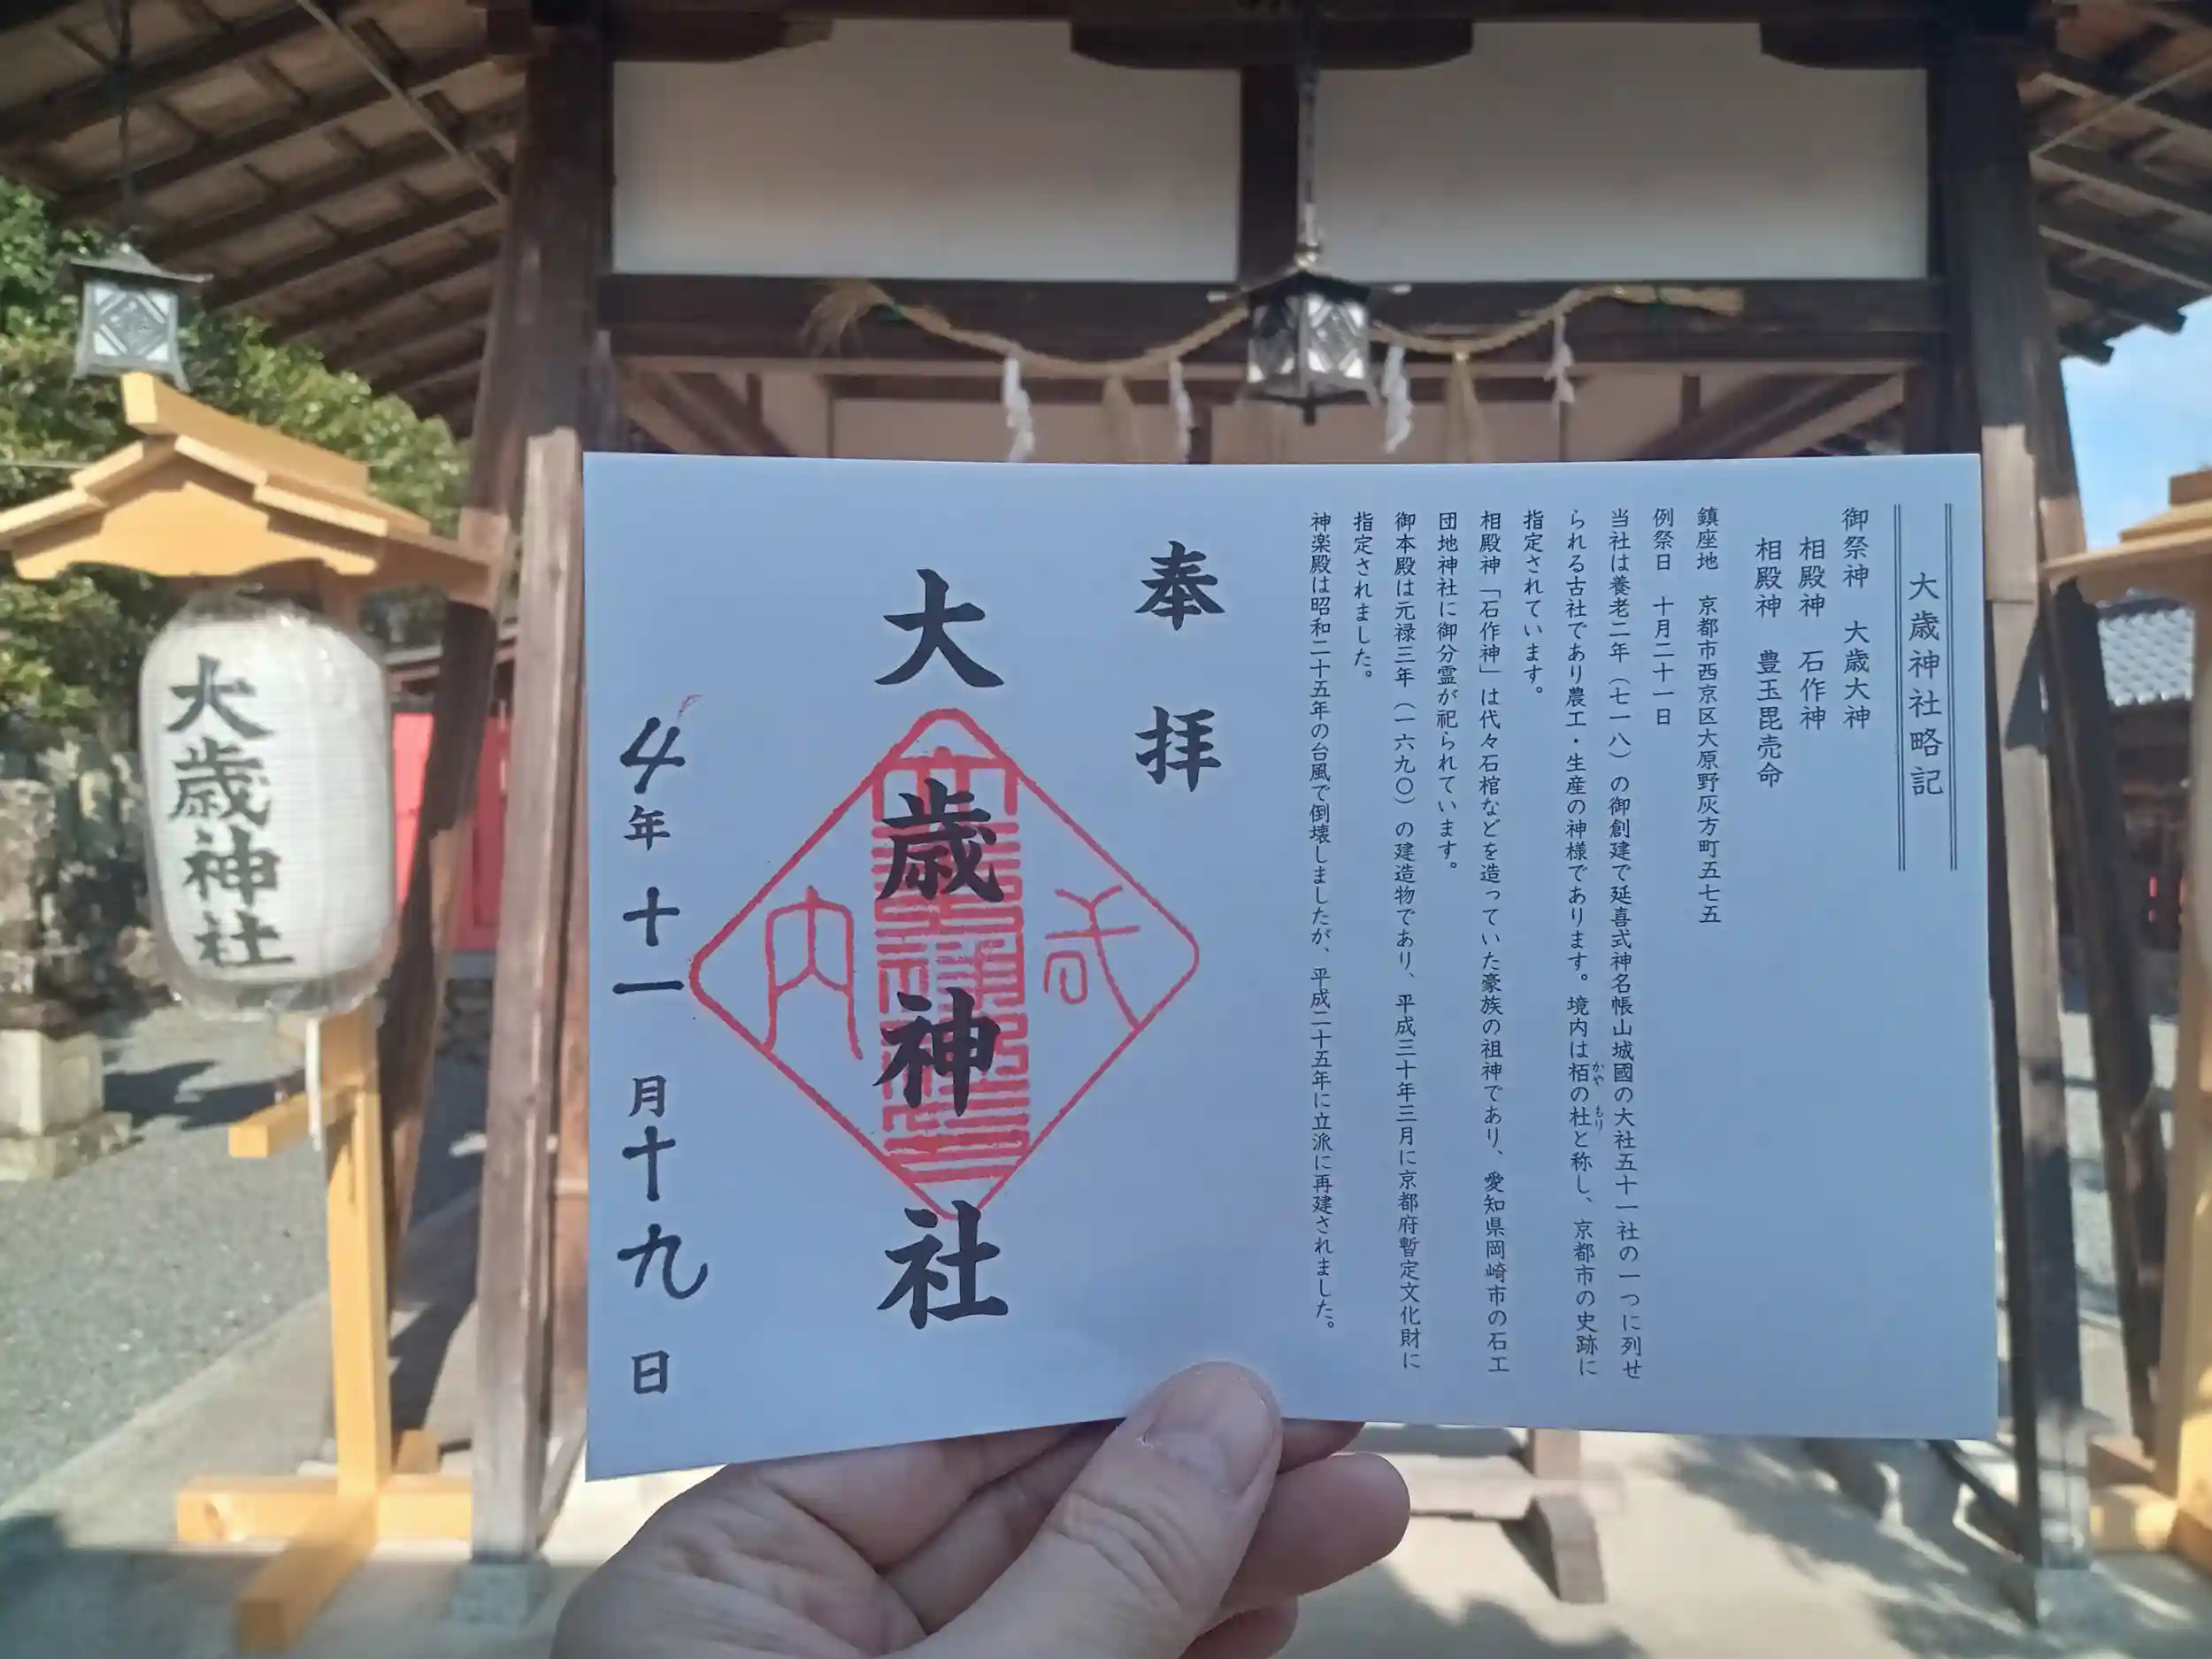 大歳神社略記
御祭神　大歳大神
相殿神　石作神
相殿神　豊玉毘売命
鎮座地　京都市西京区大原野灰方町五七五
例祭日　十月二十一日
当社は養老二年（七一八）の御創建で延喜式神名帳山城國の大社五十一社の一つに列せ
られる古社であり農工・生産の神様であります。境内は栢の杜と称し、京都市の史跡に
かや
もり
指定されています。
相殿神「石作神」は代々石棺などを造っていた豪族の祖神であり、愛知県岡崎市の石工
団地神社に御分霊が祀られています。
御本殿は元禄三年（一六九〇）の建造物であり、平成三十年三月に京都府暫定文化財に
指定されました。
神楽殿は昭和二十五年の台風で倒壊しましたが、平成二十五年に立派に再建されました。
奉拝
大歳神社
4年十一月十九日
大歳神社